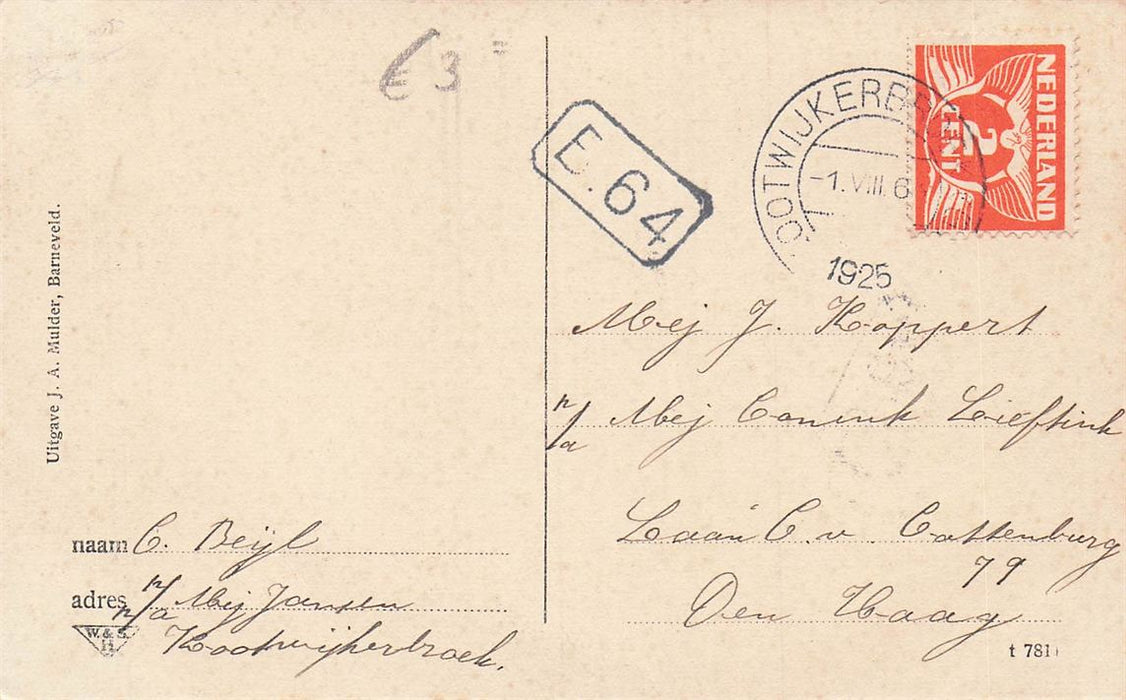 € 3
E. 64
OOTWIJKERBROEK
-1.VIII.6
1925
NEDERLAND
2
CENT
Mej J. Koppert
p/a Mej Conink Lieftink
Laan C. v. Cattenburg
79
Den Haag
t 781
Uitgave J. A. Mulder, Barneveld.
naam C. Beijl
adres p/a Mej Jansen
Kootwijkerbroek.
W. & S.